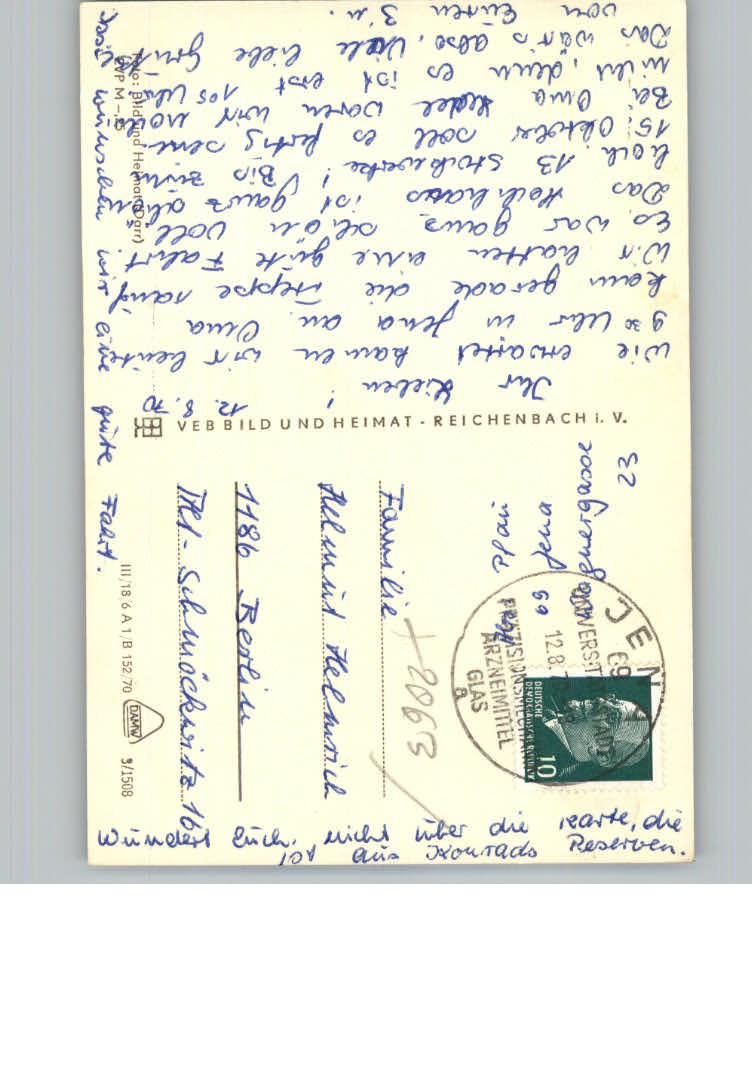 12. 8. 70
Ihr Lieben!
Wie erwartet kamen wir heute
9³⁰ Uhr in Jena an. Oma
kam gerade die Treppe rauf.
Wir hatten eine gute Fahrt.
Es war ganz schön voll.
Das Hochhaus ist ganz schön
hoch. 13 Stockwerke! Bis zum
15. Oktober soll es fertig sein.
Bei Oma waren wir noch
nicht, denn es ist erst 10⁵ Uhr
Das wär's also. Viele liebe Grüße
von Euren 3'n.
wünschen wir eine gute Fahrt.
Wundert Euch nicht über die Karte, die
ist aus Konrads Reserven.
Foto: Bild und Heimat (Darr)
EVP M –,25
VEB BILD UND HEIMAT - REICHENBACH i. V.
III/18/6 A 1/B 152/70
DAMW
S/1508
Familie
Helmut Helmrich
1186 Berlin
Alt-Schmöckwitz 16
69 Jena
23
2063
JENA
69
12.8.70
UNIVERSITÄTSSTADT
ARZNEIMITTEL
GLAS
a
DEUTSCHE
DEMOKRATISCHE REPUBLIK
10